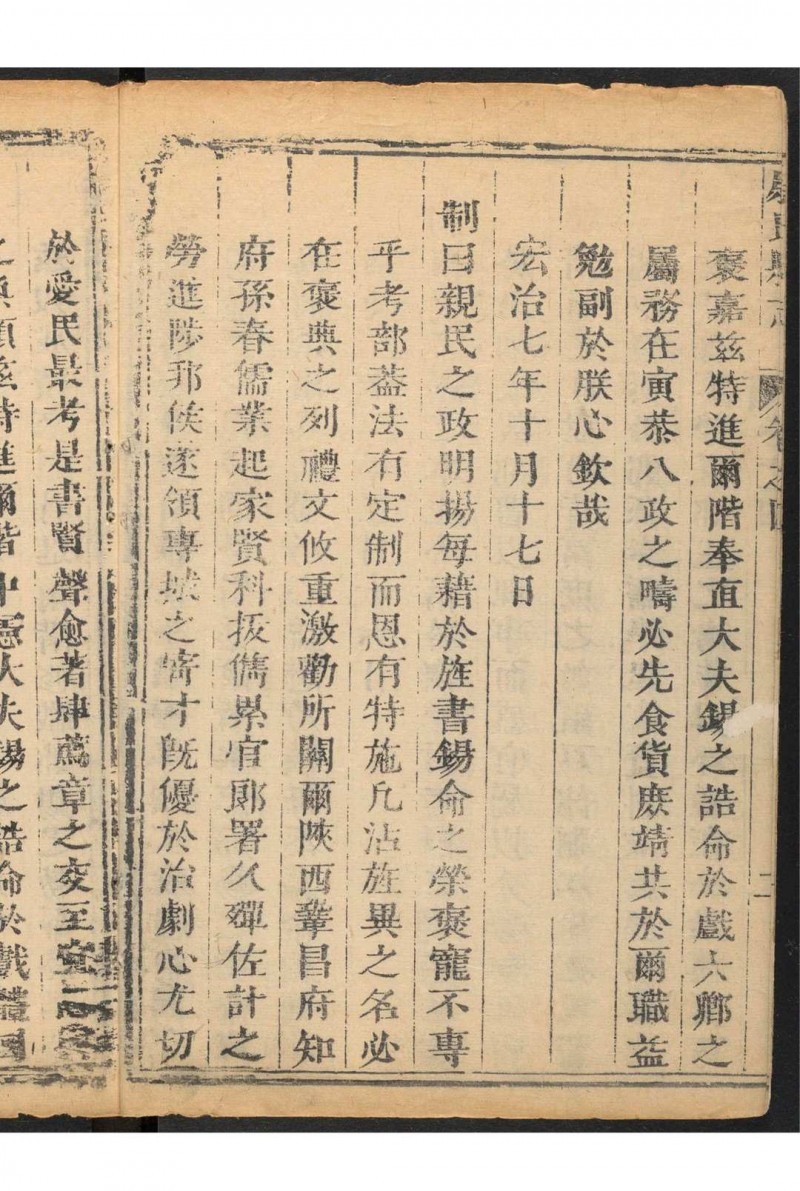 褒嘉兹特進爾階奉直大夫錫之誥命於戲六鄉之
屬務在寅恭八政之疇必先食貨庶靖共於爾職益
勉副於朕心欽哉
宏治七年十月十七日
制曰親民之政明揚每藉於旌書錫命之榮褒寵不專
乎考部葢法有定制而恩有特施凡沾旌異之名必
在褒典之列禮文攸重激勸所關爾陝西鞏昌府知
府孫春儒業起家賢科拔儁累官郎署久殫佐計之
勞進陟邦侯遂領專城之寄才旣優於治劇心尤切
於愛民最考是書賢聲愈著肆薦章之交至
兹特進爾階中憲大夫錫之誥命於戲